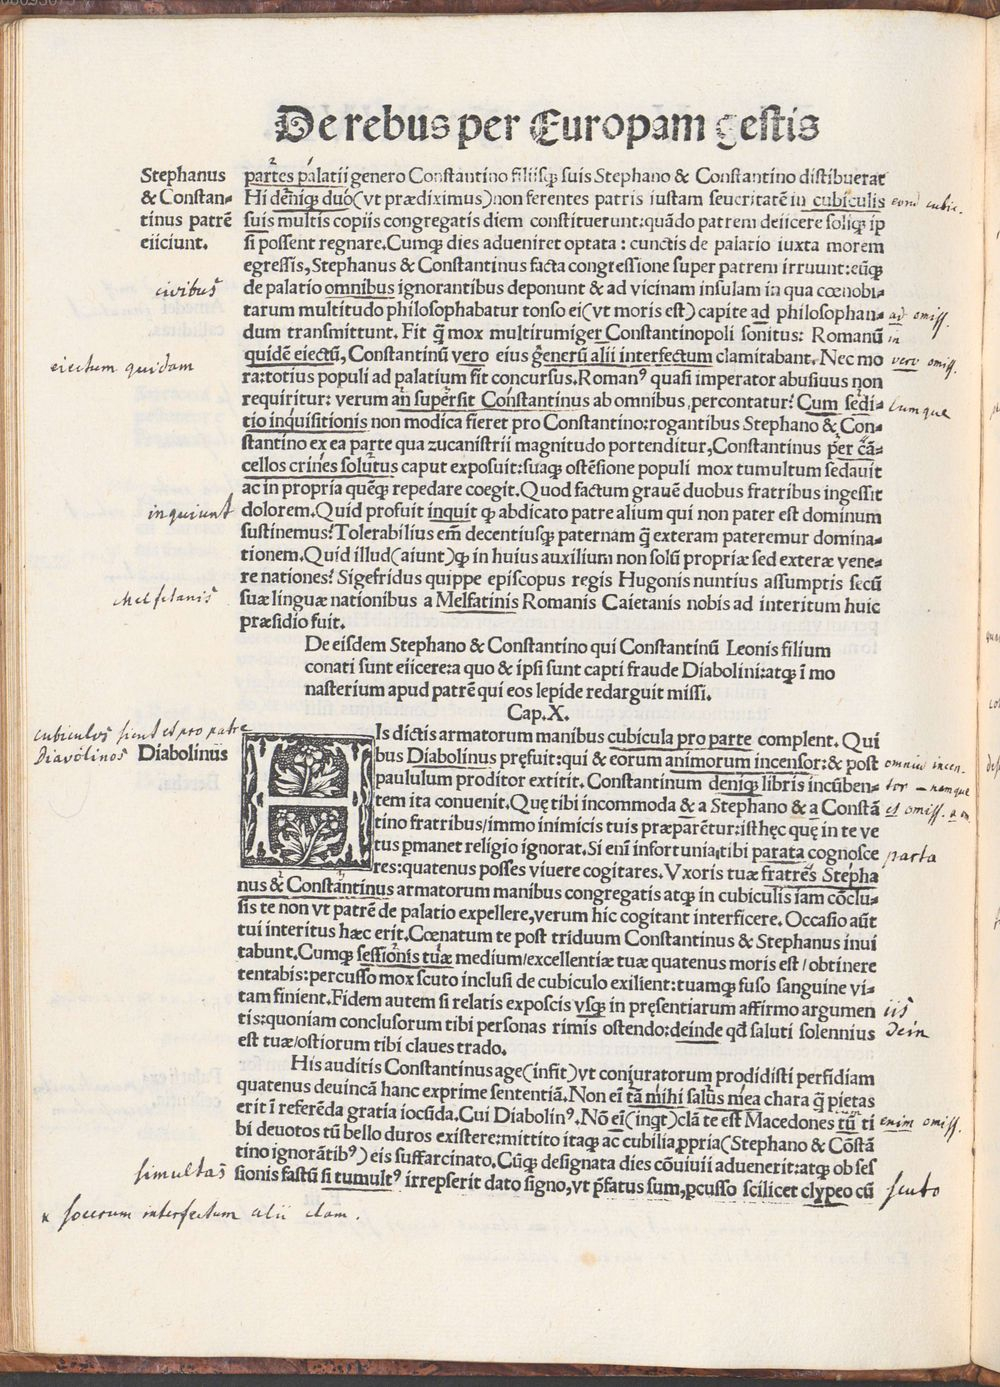 De rebus per Europam gestis
Stephanus
& Constan-
tinus patrē
eiiciunt.
partes palatii genero Constantino filiisq; suis Stephano & Constantino distibuerat
Hi deniq; duo(vt prædiximus)non ferentes patris iustam seueritatē in cubiculis
suis multis copiis congregatis diem constituerunt:quādo patrem deiicere soliq; ip
si possent regnare.Cumq; dies adueniret optata : cunctis de palatio iuxta morem
egressis,Stephanus & Constantinus facta congressione super patrem irruunt:eūq;
de palatio omnibus ignorantibus deponunt & ad vicinam insulam in qua cœnobi-
tarum multitudo philosophabatur tonso ei(vt moris est) capite ad philosophan-
dum transmittunt. Fit q̄ mox multirumiger Constantinopoli sonitus: Romanū
quidē eiectū, Constantinū vero eius generū alii interfectum clamitabant. Nec mo
ra:totius populi ad palatium fit concursus.Roman⁹ quasi imperator abusiuus non
requiritur: verum an supersit Constantinus ab omnibus percontatur? Cum sedi-
tio inquisitionis non modica fieret pro Constantino:rogantibus Stephano & Con-
stantino ex ea parte qua zucanistrii magnitudo portenditur,Constantinus per cā-
cellos crines solutus caput exposuit:suaq; ostēsione populi mox tumultum sedauit
ac in propria quēq; repedare coegit.Quod factum grauē duobus fratribus ingessit
dolorem.Quid profuit inquit q; abdicato patre alium qui non pater est dominum
sustinemus?Tolerabilius em̄ decentiusq; paternam q̄ exteram pateremur domina-
tionem.Quid illud(aiunt)q; in huius auxilium non solū propriæ sed exteræ vene-
re nationes? Sigefridus quippe episcopus regis Hugonis nuntius assumptis secū
suæ linguæ nationibus a Melfatinis Romanis Caietanis nobis ad interitum huic
præsidio fuit.
De eisdem Stephano & Constantino qui Constantinū Leonis filium
conati sunt eiicere:a quo & ipsi sunt capti fraude Diabolini:atq; ī mo
nasterium apud patrē qui eos lepide redarguit missi.
Cap.X.
Diabolinus
HIs dictis armatorum manibus cubicula pro parte complent. Qui
bus Diabolinus pręfuit:qui & eorum animorum incensor:& post
paululum proditor extitit. Constantinum deniq; libris incūben-
tem ita conuenit. Quę tibi incommoda & a Stephano & a Constā
tino fratribus/immo inimicis tuis præparētur:isthęc quę in te ve
tus pmanet religio ignorat. Si enī infortunia tibi parata cognosce
res:quatenus posses viuere cogitares. Vxoris tuæ fratres Stepha
nus & Constantinus armatorum manibus congregatis atq; in cubiculis iam cōclu-
sis te non vt patrē de palatio expellere,verum hic cogitant interficere. Occasio aūt
tui interitus hæc erit.Cœnatum te post triduum Constantinus & Stephanus inui
tabunt.Cumq; sessionis tuæ medium/excellentiæ tuæ quatenus moris est/obtinere
tentabis:percusso mox scuto inclusi de cubiculo exilient:tuamq; fuso sanguine vi-
tam finient.Fidem autem si relatis exposcis vsq; in pręsentiarum affirmo argumen
tis:quoniam conclusorum tibi personas rimis ostendo:deinde qd̄ saluti solennius
est tuæ/ostiorum tibi claues trado.
His auditis Constantinus age(infit)vt coniuratorum prodidisti perfidiam
quatenus deuincā hanc exprime sententiā. Non eī tā mihi salus mea chara q̄ pietas
erit ī referēda gratia iocūda.Cui Diabolin⁹. Nō eī(inqt)clā te est Macedones tū ti
bi deuotos tū bello duros existere:mittito itaq; ac cubilia ppria(Stephano & Cōstā
tino ignorātib⁹) eis suffarcinato. Cūq; designata dies cōuiuii aduenerit:atq; ob ses
sionis fastū si tumult⁹ irrepserit dato signo,vt p̄fatus sum,pcusso scilicet clypeo cū
civibus
eiectum quidam
inquiunt
Melfitanis
cubiculos sicut et pro patre
Diavolinos
simultas
x socerum interfectum alii clam.
ad omiss.
in
vero omiss.
Cumque
omniū incen-
tor – namque
et omiss.
parta
iis
Dein
enim omiss.
scuto